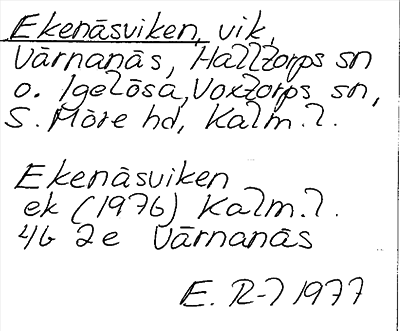 Ekenäsviken, vik,
Värnanäs, Halltorps sn
o. Igelösa, Voxtorps sn,
S. Möre hd, Kalm. l.
Ekenäsviken
ek (1976) Kalm. l.
4G 2e Värnanäs
E. R-l 1977